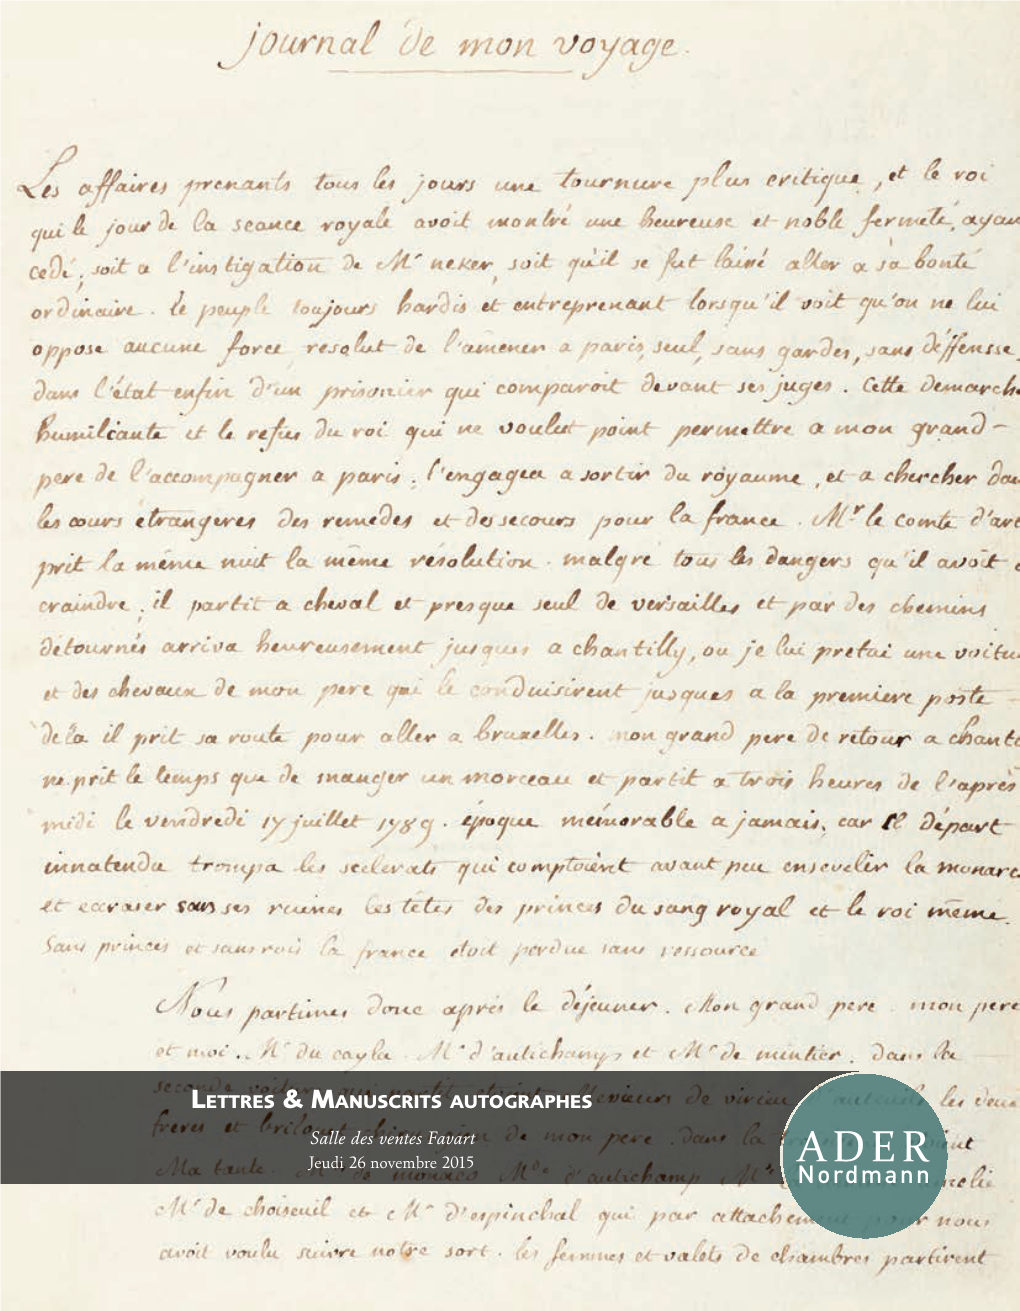 journal de mon voyage.
Les affaires prenants tous les jours une tournure plus critique, et le roi
qui le jour de la seance royale avoit montré une heureuse et noble fermeté, ayan
cedé, soit a l'instigation de Mr neker, soit qu'il se fut laissé aller a sa bonté
ordinaire. le peuple toujours hardis et entreprenant lorsqu'il voit qu'on ne lui
oppose aucune force, resolut de l'amener a paris, seul, sans gardes, sans déffensse,
dans l'état enfin d'un prisonier qui comparoit devant ses juges. Cette demarche
humiliante et le refus du roi qui ne voulut point permettre a mon grand-
pere de l'accompagner a paris; l'engagea a sortir du royaume, et a chercher dan
les cours étrangeres des remedes et des secours pour la france. Mr le comte d'art
prit la même nuit la même résolution. malgré tous les dangers qu'il avoit
craindre; il partit a cheval et presque seul de versailles et par des chemins
détournés arriva heureusement jusques a chantilly, ou je lui pretai une voitu
et des chevaux de mon pere qui le conduisirent jusques a la premiere poste
dela il prit sa route pour aller a bruxelles. mon grand pere de retour a chant
ne prit le temps que de manger un morceau et partit a trois heures de l'après
midi le vendredi 17 juillet 1789. époque mémorable a jamais, car ce départ
innatendu trompa les scelerats qui comptoient avant peu ensevelir la monarc
et ecraser sous ses ruines les têtes des princes du sang royal et le roi même.
Sans princes et sans rois la france étoit perdue sans ressource
Nous partimes donc après le déjeuner. Mon grand pere mon pere
et moi. Mr du cayla. Mr d'autichamp et Mr de mintier. dans la
seconde voiture qui partit etoient de virieu d'auteuil les deux
freres et de mon pere. dans la
Ma tante. de monaco Mde d'autichamp
Mr de choiseuil et Mr d'espinchal qui par attachement pour nous
avoit voulu suivre notre sort. les femmes et valets de chambres partirent
LETTRES & MANUSCRITS AUTOGRAPHES
Salle des ventes Favart
Jeudi 26 novembre 2015
ADER
Nordmann